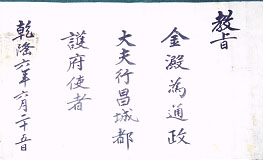 教旨
金澱為通政
大夫行昌城都
護府使者
乾隆六年六月二十五日